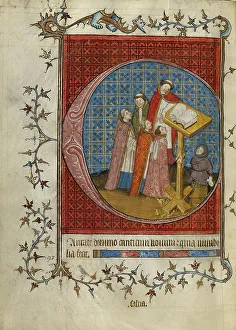 Antate domino canticum nouum quia mirabi
lia fecit.